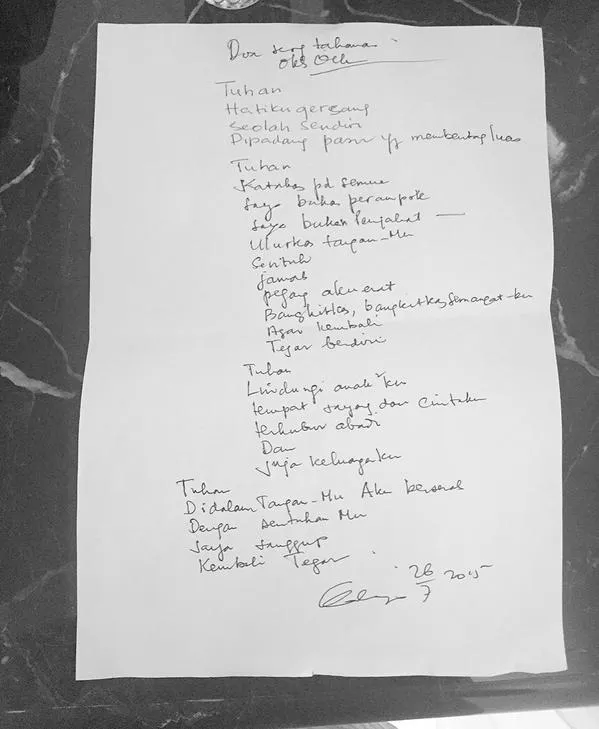 Doa seorg tahanan
oleh OCK
Tuhan
Hatiku gersang
seolah sendiri
Dipadang pasir yg membentang luas
Tuhan
Katakan pd semua
saya bukan perampok
saya bukan penjahat
Ulurkan tangan-Mu
Sentuh
Jamah
pegang aku erat
Bangkitkan, bangkitkan semangat-ku
Agar kembali
Tegar berdiri
Tuhan
Lindungi anak²ku
tempat sayang dan cintaku
terkubur abadi
Dan
juga keluargaku
Tuhan
Didalam Tangan-Mu Aku berserah
Dengan sentuhan Mu
saya sanggup
Kembali Tegar
26/7 2015